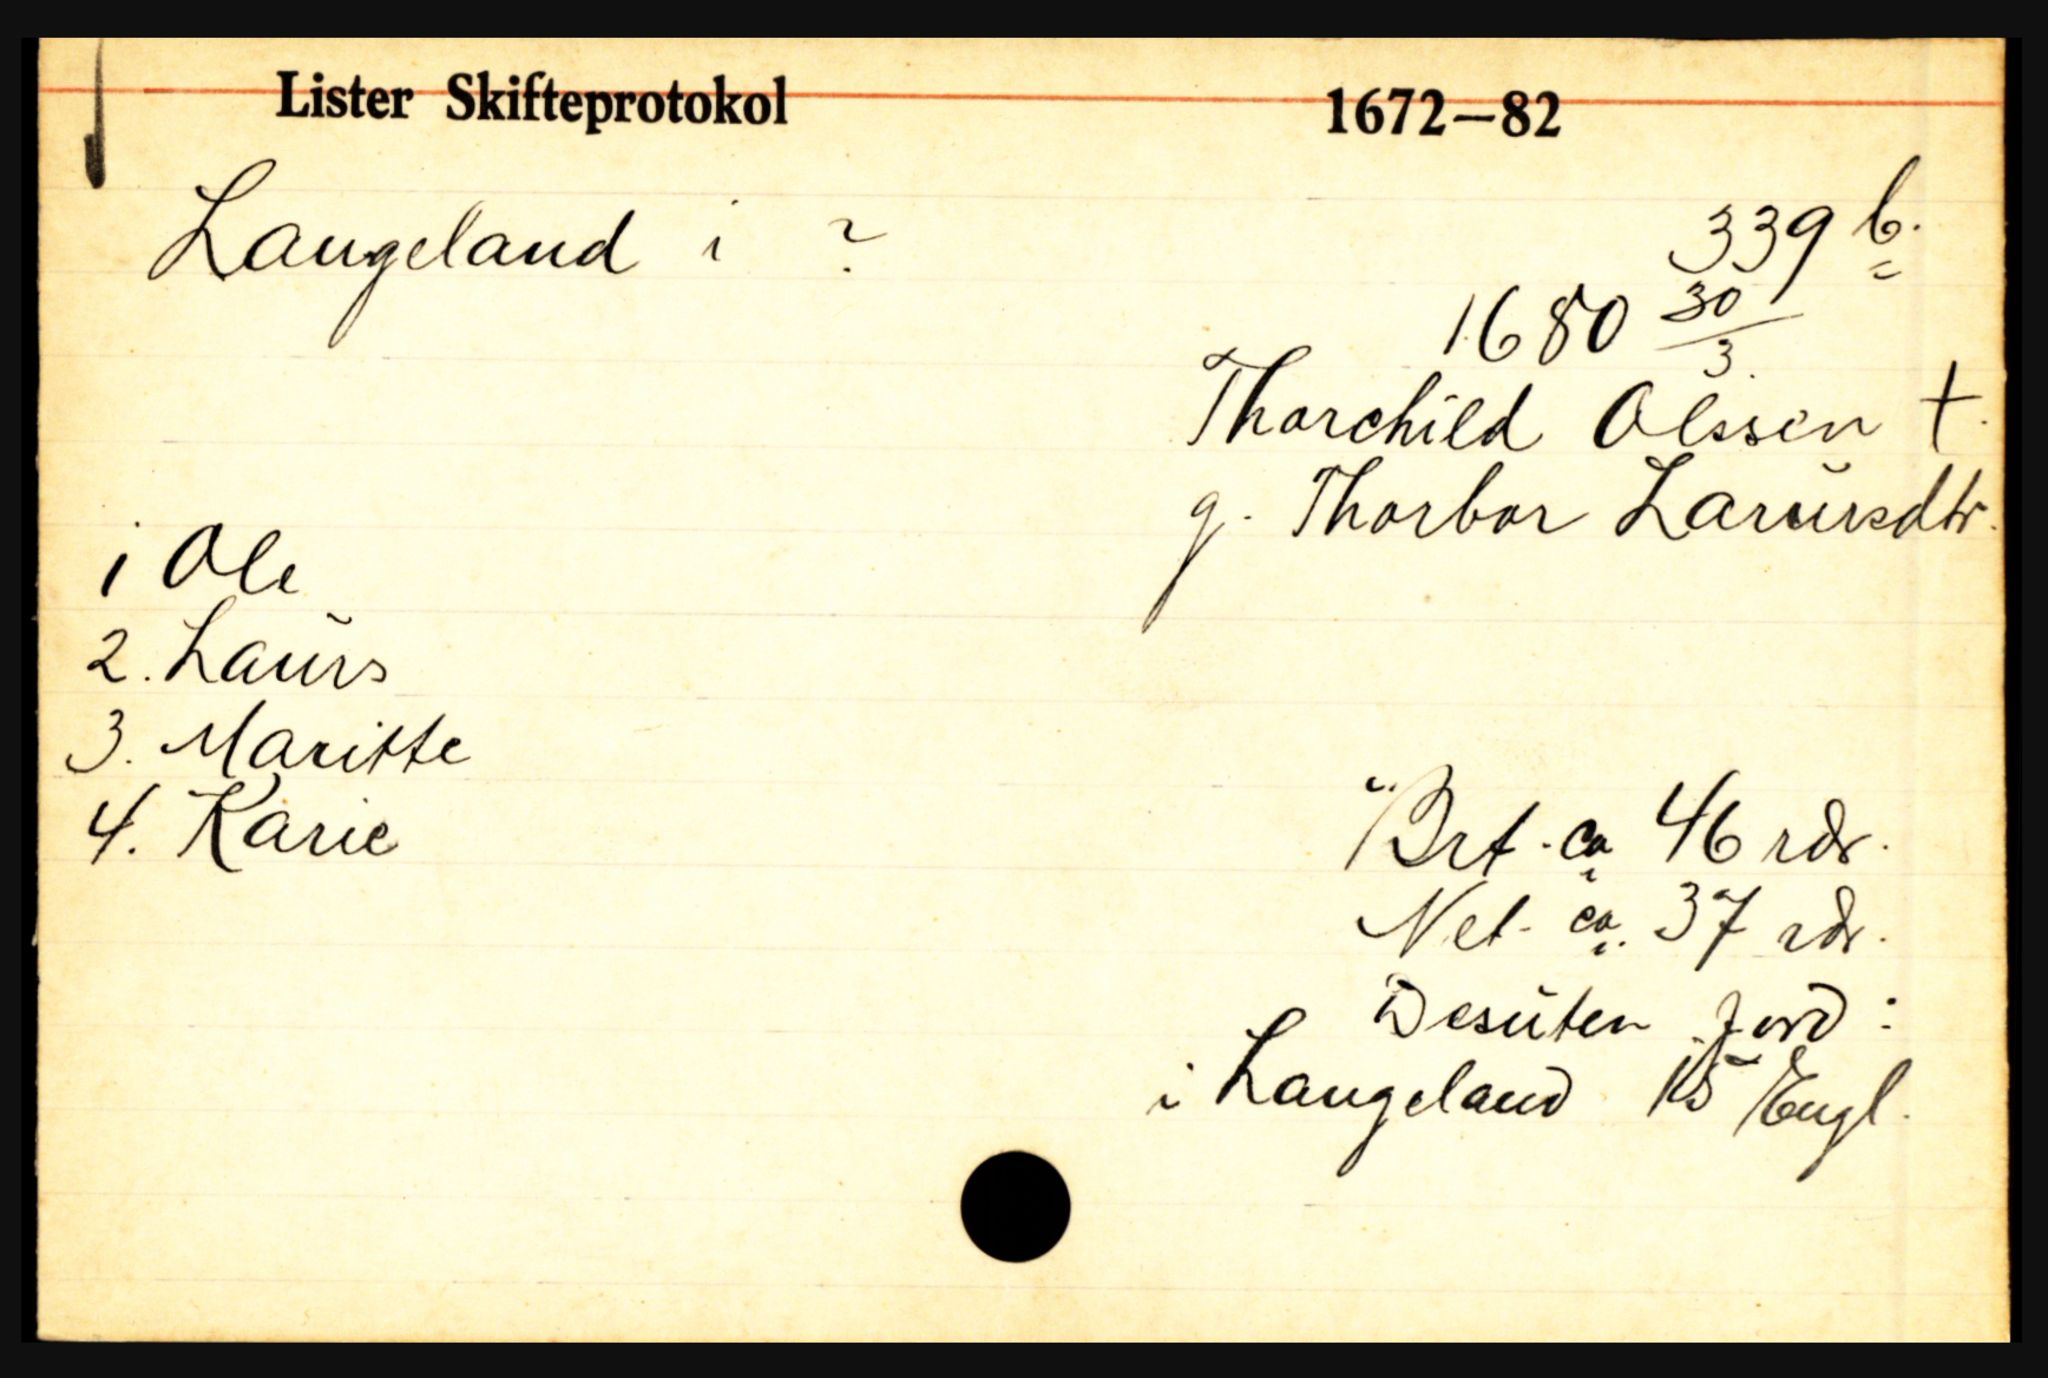 Lister Skifteprotokol 1672–82
Langeland i ?
339 b.
1680 30/3.
Thorchild Olssen †.
g. Thorbor Larursdtr.
1 Ole
2. Laurs
3. Maritte
4. Karie
Brt. ca 46 rdr.
Net. ca. 37 rdr.
Desuten jord :
i Langeland 15 Engl.